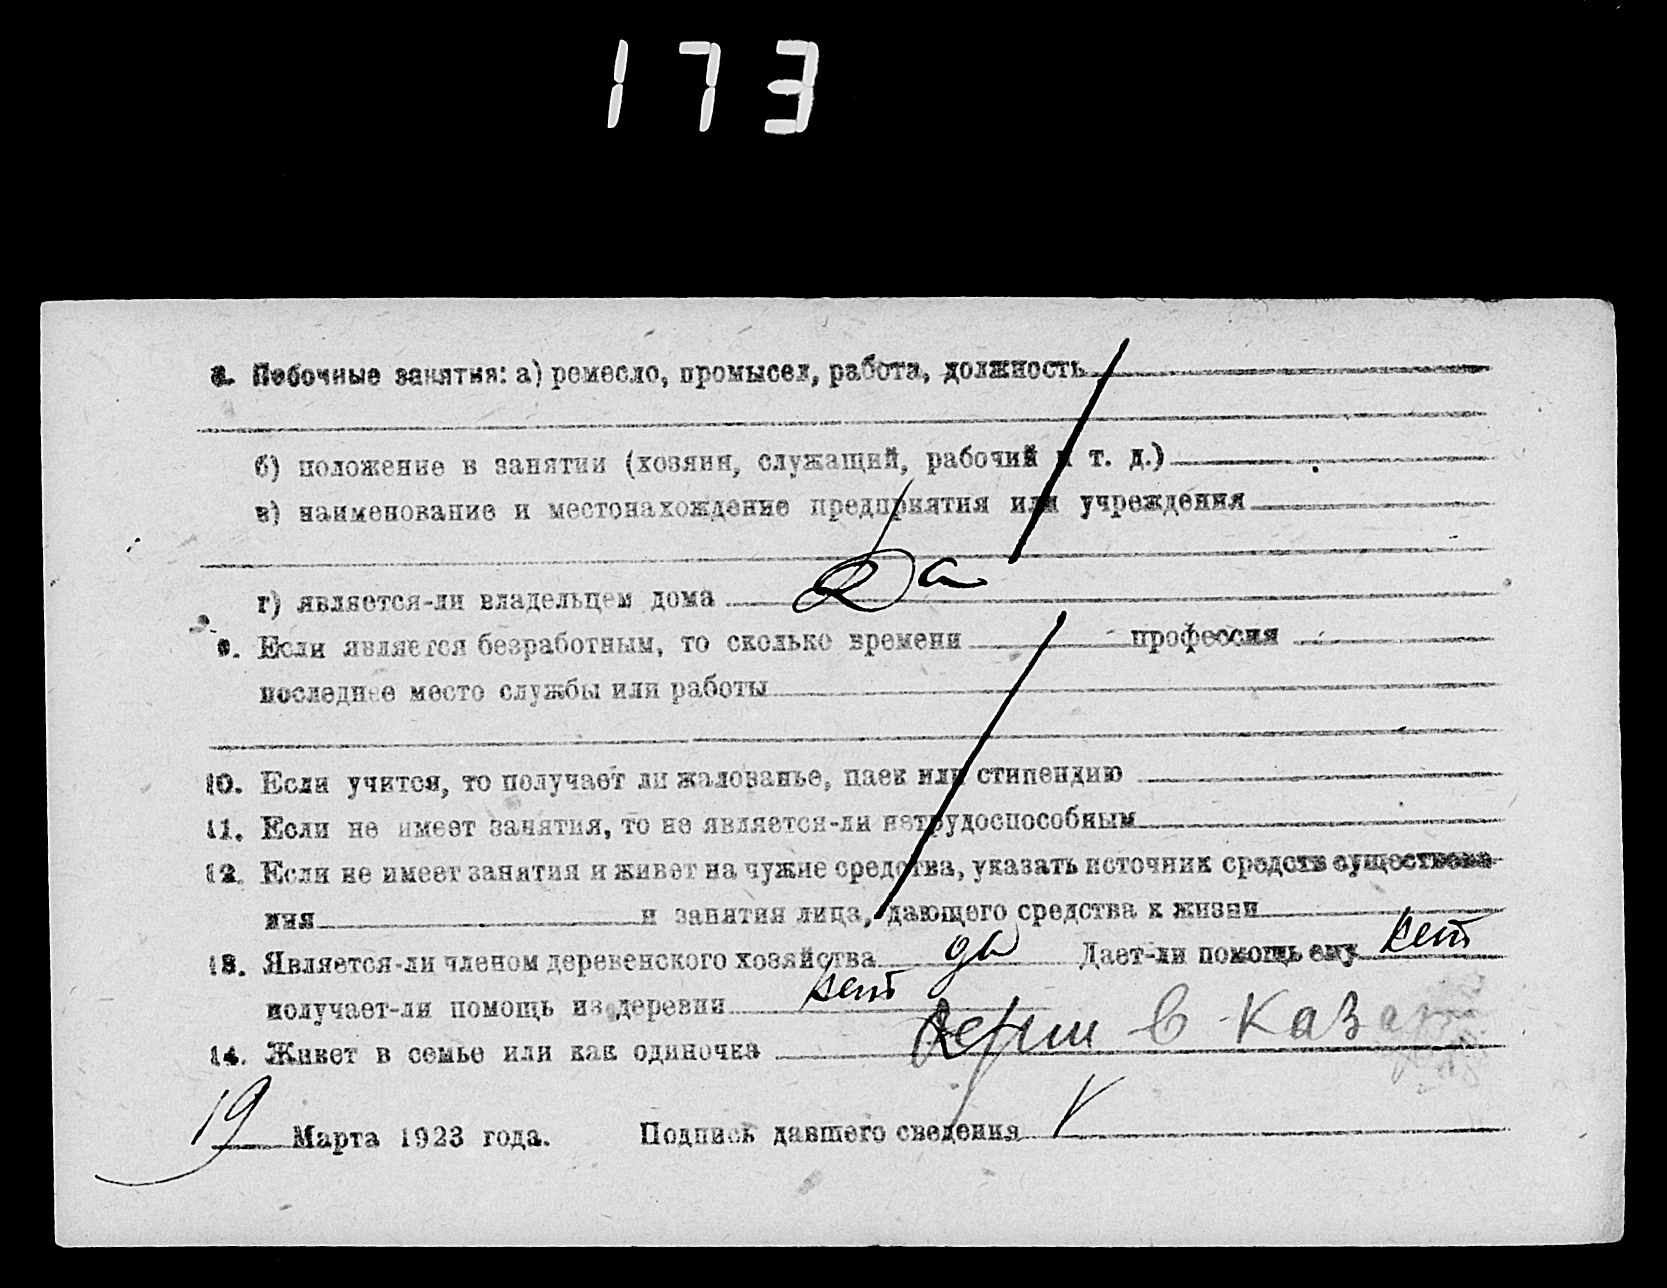 173
8. Побочные занятия: а) ремесло, промысел, работа, должность
б) положение в занятии (хозяин, служащий, рабочий и т. д.)
в) наименование и местонахождение предприятия или учреждения
г) является-ли владельцем дома Да
9. Если является безработным, то сколько времени профессия
последнее место службы или работы
10. Если учится, то получает ли жалованье, паек или стипендию
11. Если не имеет занятия, то не является-ли нетрудоспособным
12. Если не имеет занятия и живет на чужие средства, указать источник средств существова-
ния и занятия лица, дающего средства к жизни
13. Является-ли членом деревенского хозяйства да Дает-ли помощь ему нет
получает-ли помощь из деревни нет
14. Живет в семье или как одиночка в Казан
19 Марта 1923 года. Подпись давшего сведения